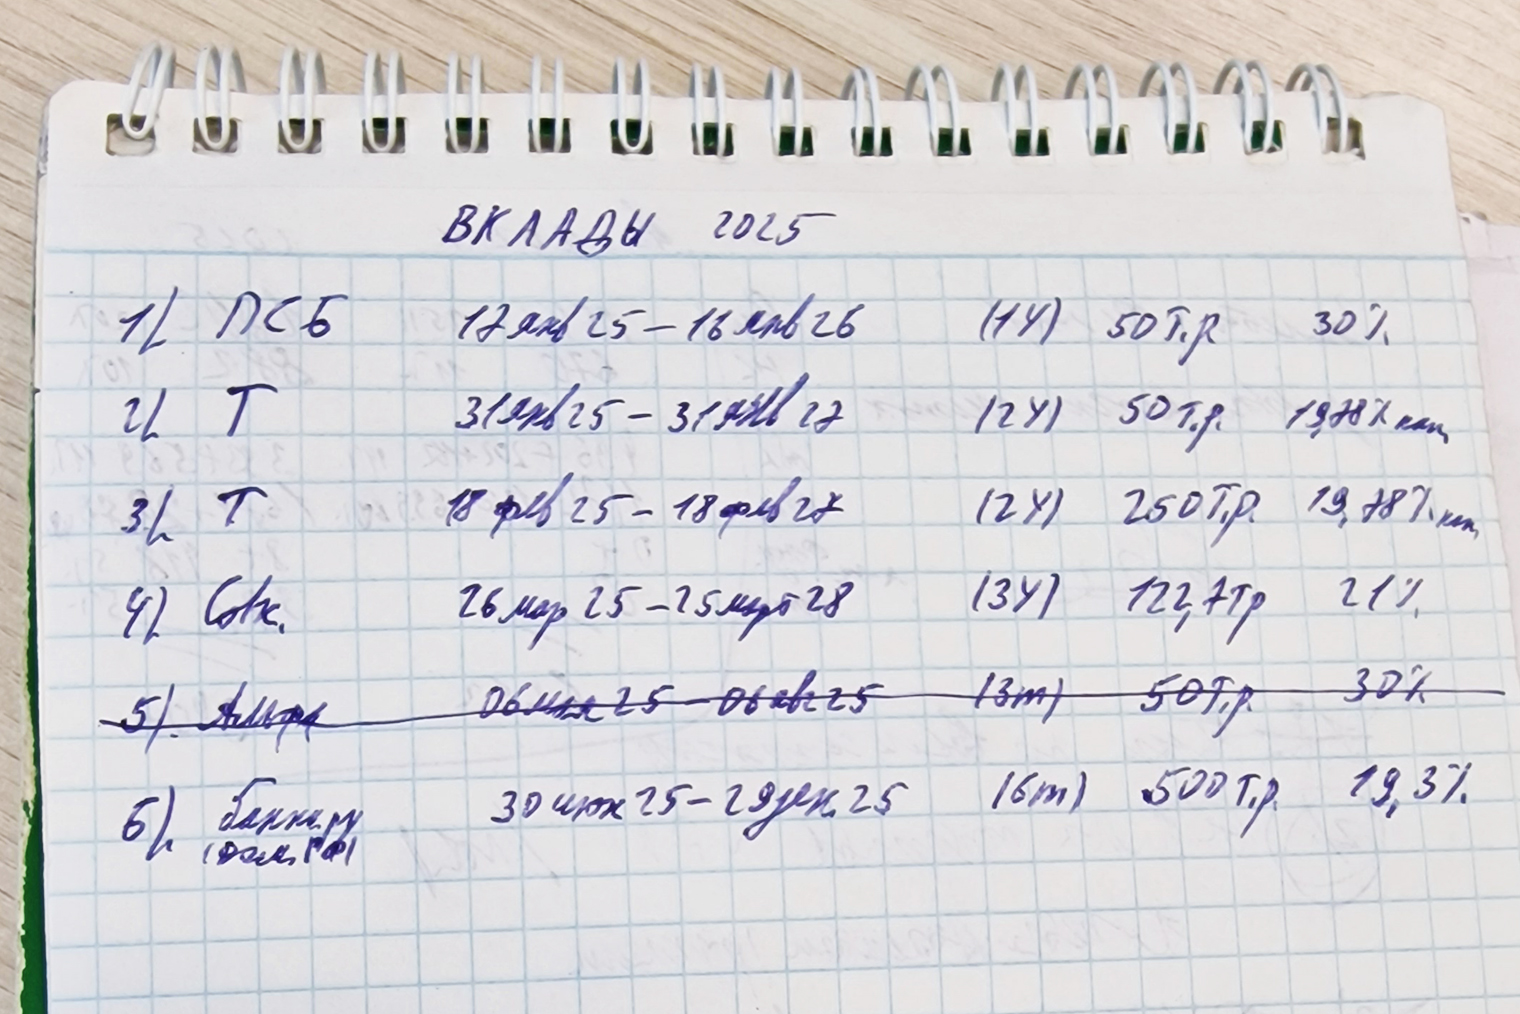 ВКЛАДЫ 2025
1). ПСБ 17 янв 25 – 16 янв 26 (1Y) 50 т.р 30%
2). Т 31 янв 25 – 31 янв 27 (2Y) 50 т.р. 19,78% кап.
3). Т 18 фев 25 – 18 фев 27 (2Y) 250 т.р. 19,78% кап.
4). Совк. 26 мар 25 – 25 март 28 (3Y) 122,7 тр 21%
5). Альфа 06 мая 25 – 06 авг 25 (3m) 50 т.р. 30%
6). банки.ру 30 июн 25 – 29 дек. 25 (6m) 500 т.р. 19,3%
(дом.РФ)